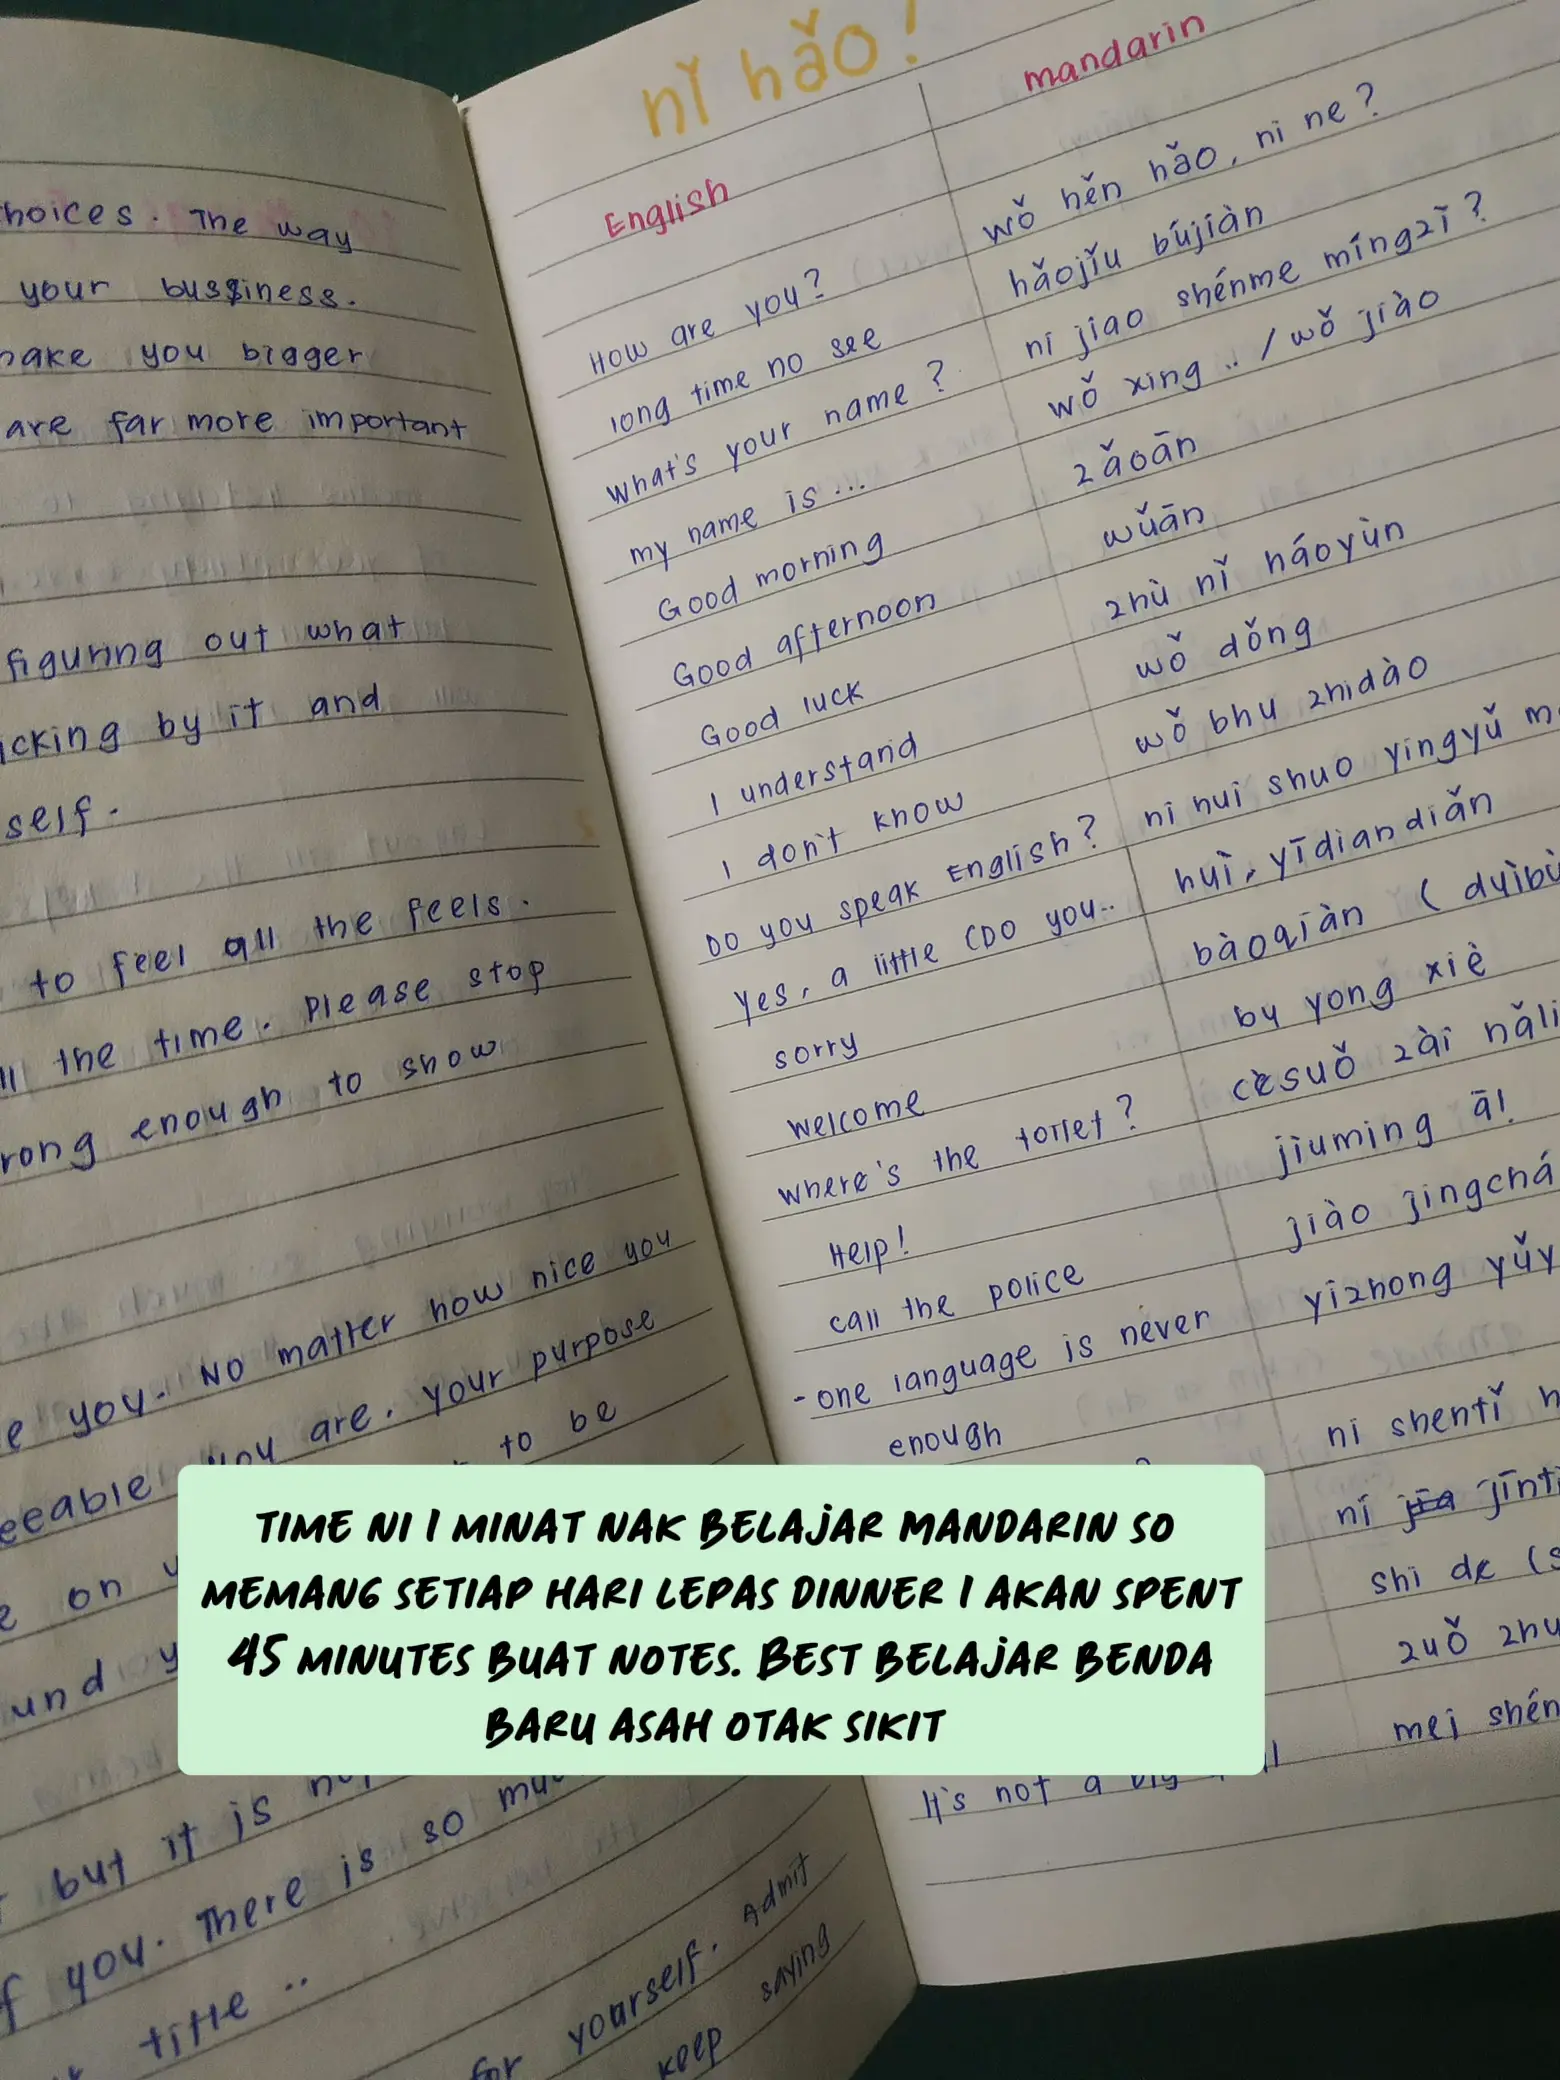 hoices. The way
your bussiness.
make you bigger
are far more important
figuring out what
icking by it and
self.
to feel all the feels.
ll the time. Please stop
rong enough to show
e you. No matter how nice you
eeable you are. Your purpose
to be
e on
und
but it is
f you. There is so mu
title ..
for yourself. Admit
keep saying
nǐ hǎo!
English
mandarin
How are you?
wǒ hěn hǎo, ni ne?
long time no see
hǎojǐu bújiàn
what's your name?
ni jiao shénme míngzī?
my name is...
wǒ xing .. / wǒ jiào
Good morning
zǎoān
Good afternoon
wǔān
Good luck
zhù nǐ háoyùn
I understand
wǒ dǒng
I don't know
wǒ bhu zhidào
Do you speak English?
ni hui shuo yingyǔ m
Yes, a little (Do you..
huì, yīdiandiǎn
sorry
bàoqiàn (duìbù
welcome
bu yong xiè
where's the toilet?
cèsuǒ zài nǎli
Help!
jiuming ā!
call the police
jiào jīngchá
- one language is never
enough
yīzhong yǔy
ni shentǐ h
ní jīnt
shi de (s
zuǒ zhu
It's not a big
mei shén
TIME NI I MINAT NAK BELAJAR MANDARIN SO
MEMANG SETIAP HARI LEPAS DINNER I AKAN SPENT
45 MINUTES BUAT NOTES. BEST BELAJAR BENDA
BARU ASAH OTAK SIKIT